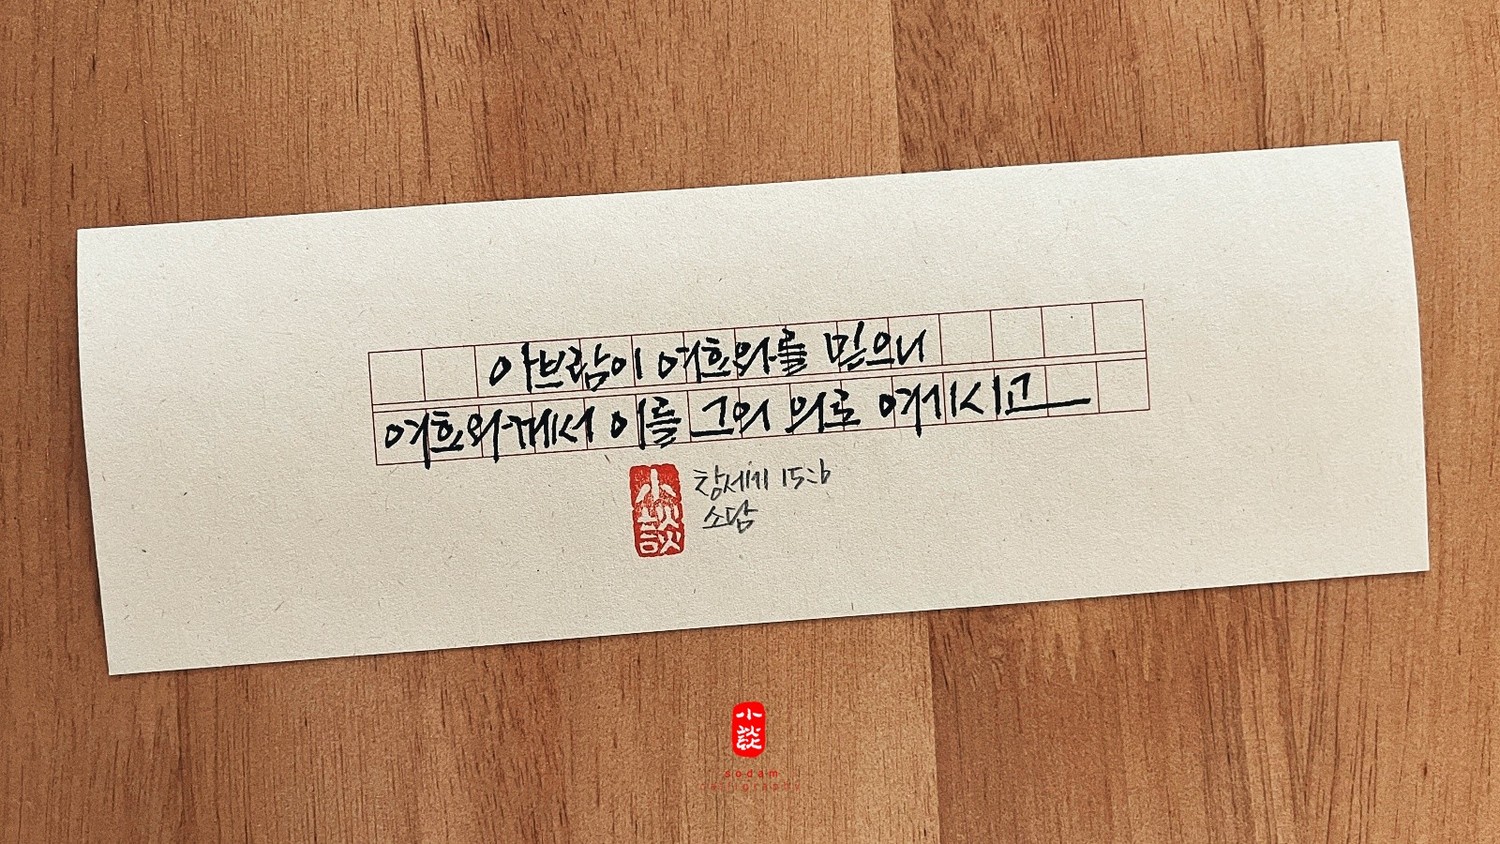 아브람이 여호와를 믿으니
여호와께서 이를 그의 의로 여기시고
小談
창세기 15:6
소담
小談
sodam
calligraphy